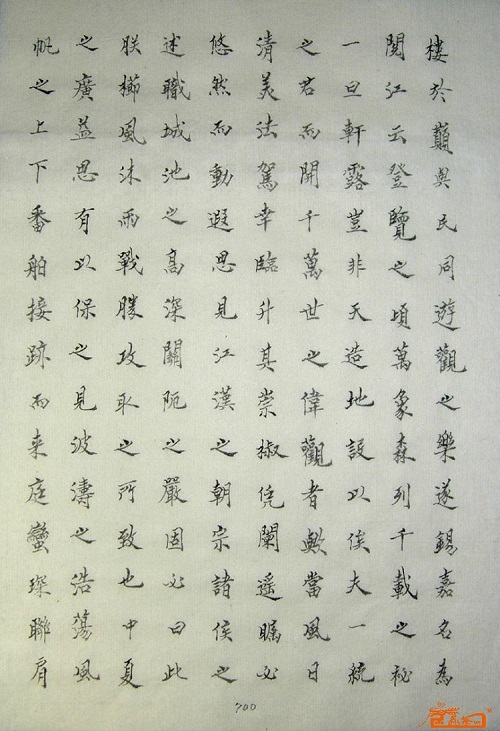 樓於巔與民同遊觀之樂遂錫嘉名為
閱江云登覽之頃萬象森列千載之祕
一旦軒露豈非天造地設以俟夫一統
之君而開千萬世之偉觀者歟當風日
清美法駕幸臨升其崇椒凭闌遥矚必
悠然而動遐思見江漢之朝宗諸侯之
述職城池之高深關阨之嚴固必曰此
朕櫛風沐雨戰勝攻取之所致也中夏
之廣益思有以保之見波濤之浩蕩風
帆之上下番舶接跡而来庭蠻琛聯肩
700